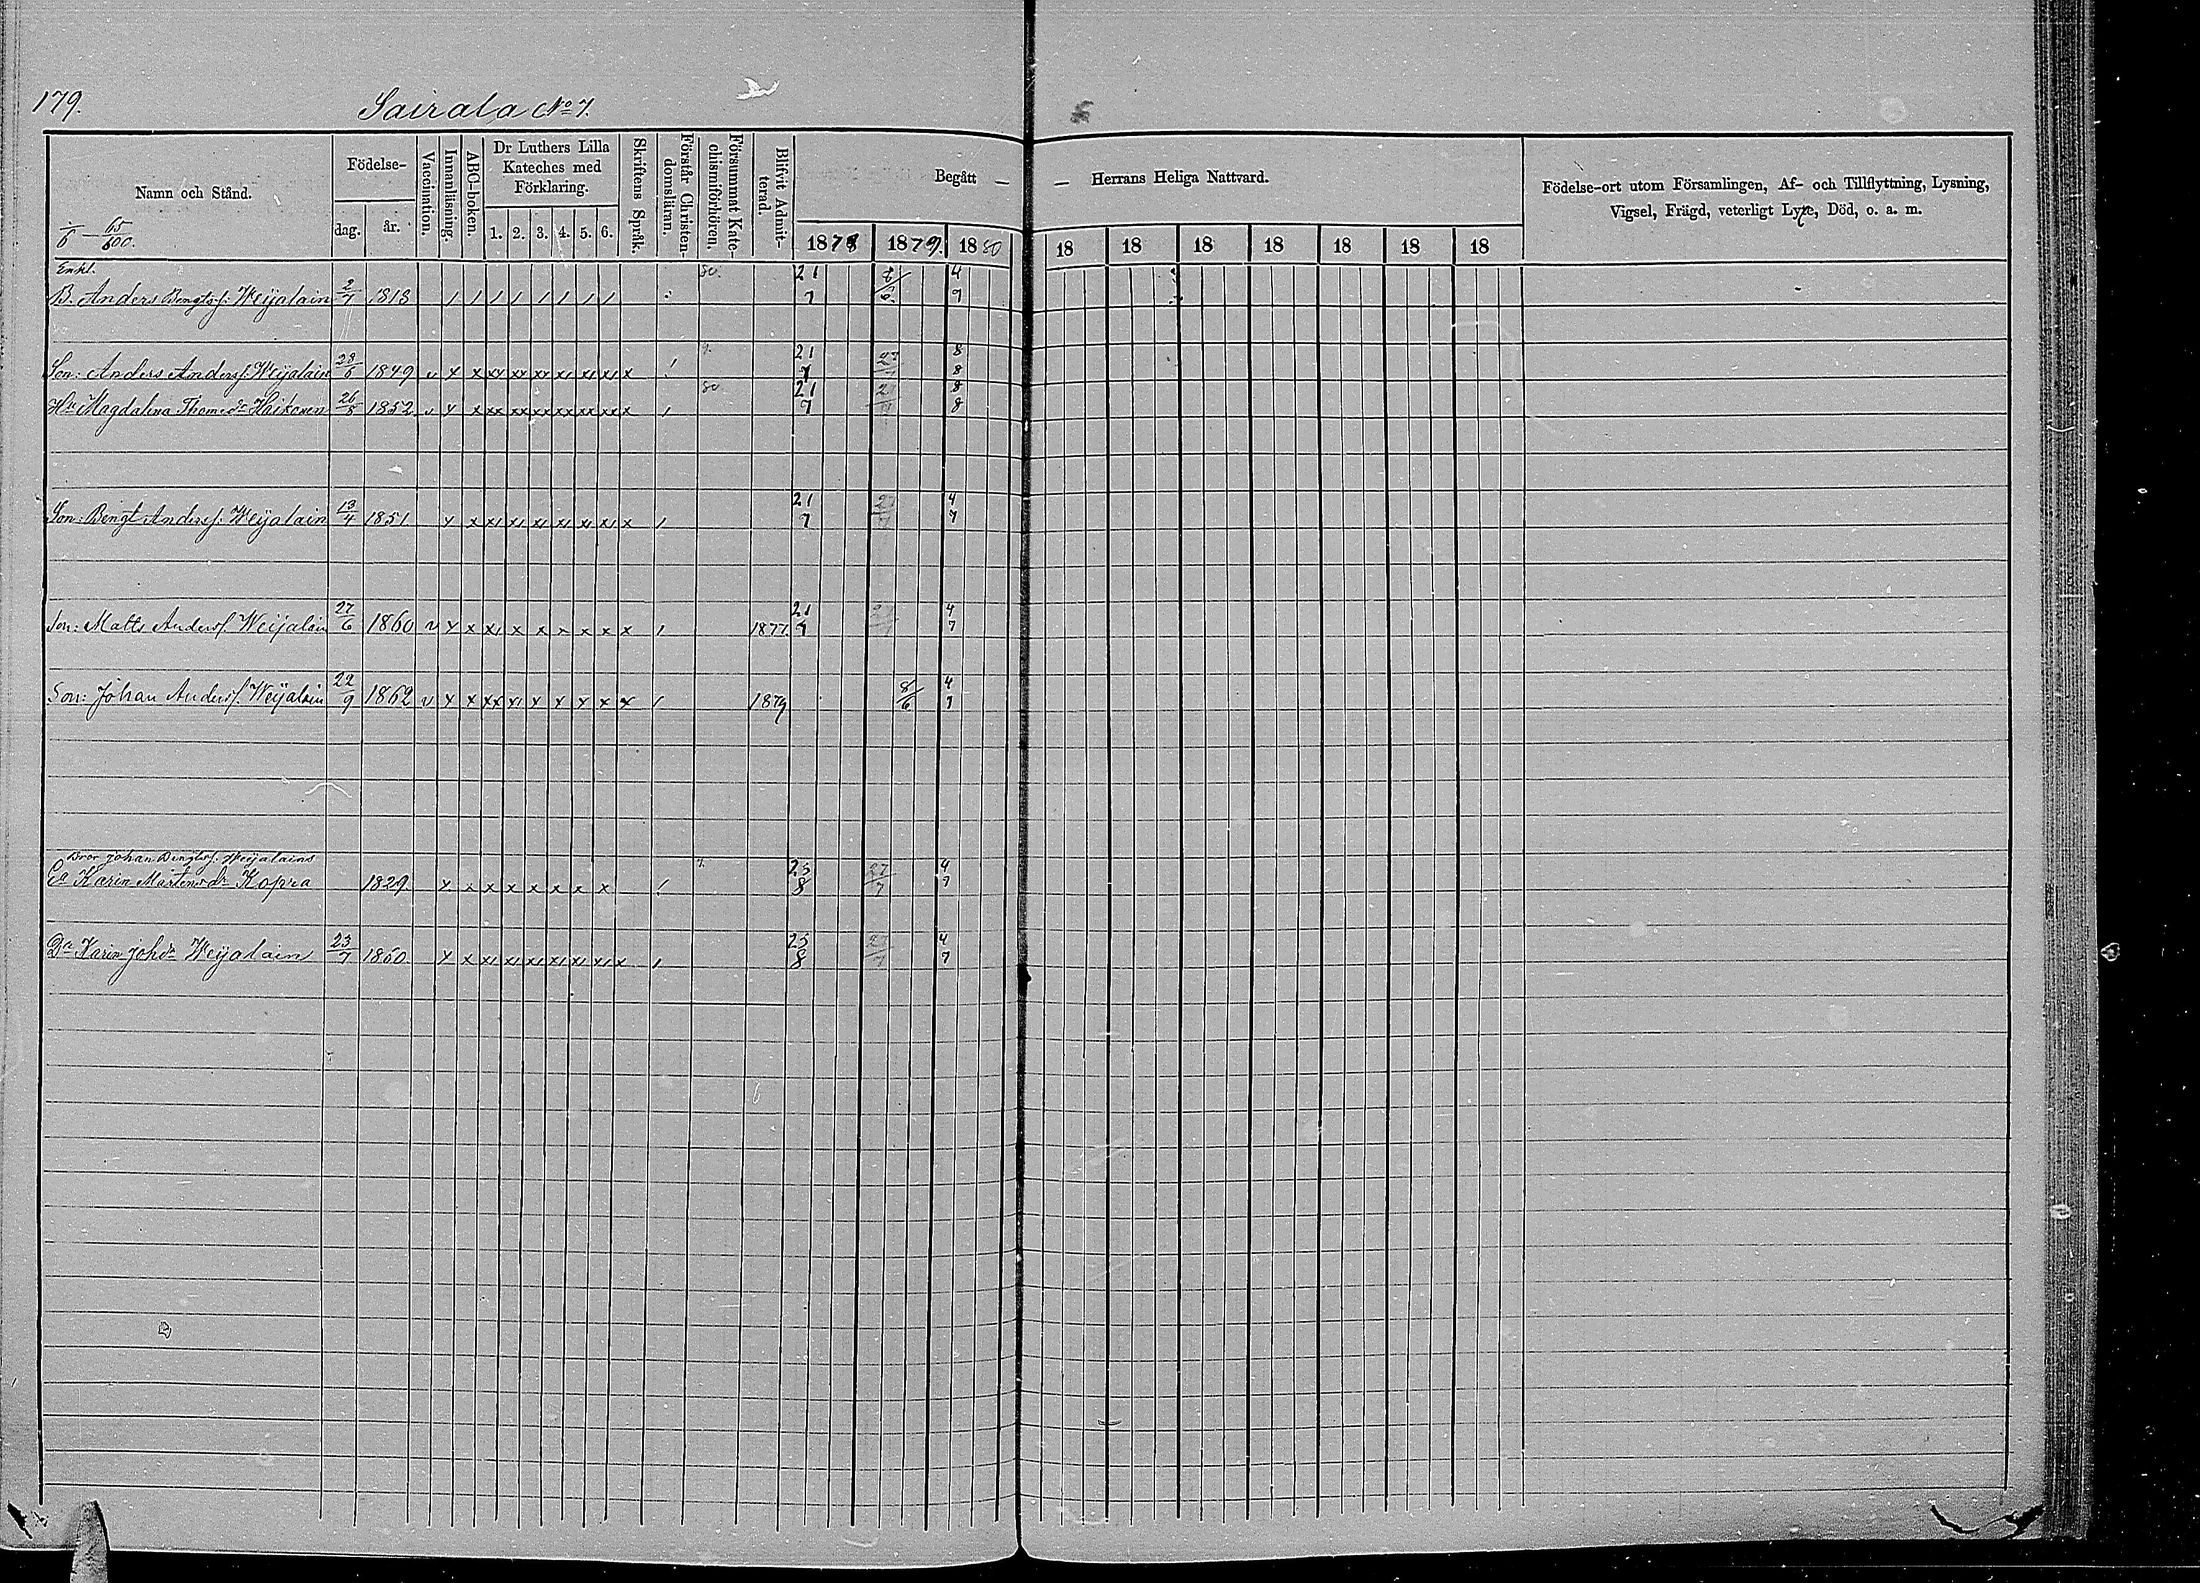 179.
Sairala No 7.
Namn och Stånd.
1/6 — 65/600.
Födelse-
dag.
år.
Vaccination.
Innanläsning.
ABC-boken.
Dr Luthers Lilla Kateches med Förklaring.
1. 2. 3. 4. 5. 6.
Skriftens Språk.
Förstår Christen-domsläran.
Försummat Kate-chismiförhören.
Blifvit Admit-terad.
Begått — — Herrans Heliga Nattvard.
1878 1879. 1880 18 18 18 18 18 18 18
Födelse-ort utom Församlingen, Af- och Tillflyttning, Lysning,
Vigsel, Frägd, veterligt Lyte, Död, o. a. m.
Enkl. 80. 21 8 4
B. Anders Bengtss: Weijalain 2/7 1813 / / / / / / / / 7 6 7
Son: Anders Anderss. Weijalain 28/6 1849 v x x xx xx xx xi xi xi x 21/7 27/7 8/8
Hu Magdalena Thomedr Haikonen 26/5 1852 v x x xx xx xx xx xx xx x / 80. 21/7 27/7 8/8
Son: Bengt Anderss: Weijalain 13/4 1851 x x xi xi xi xi xi xi x / 21/7 27/7 4/7
Son: Matts Anderss. Weijalain 27/6 1860 v x x xi x x x x x x / 1877. 21/7 4/7
Son: Johan Anderss. Weijalain 22/9 1862 v x x xx xi x x x x x / 1879 8/6 4/7
Bror Johan Bengtss. Weijalains
Ea Karin Mårtensdr Kopra 1829. x x x x x x x x 25/8 27/7 4/7
Dr Karin Johdr Weijalain 23/7 1860 x x xi xi xi xi xi xi x / 25/8 27/7 4/7